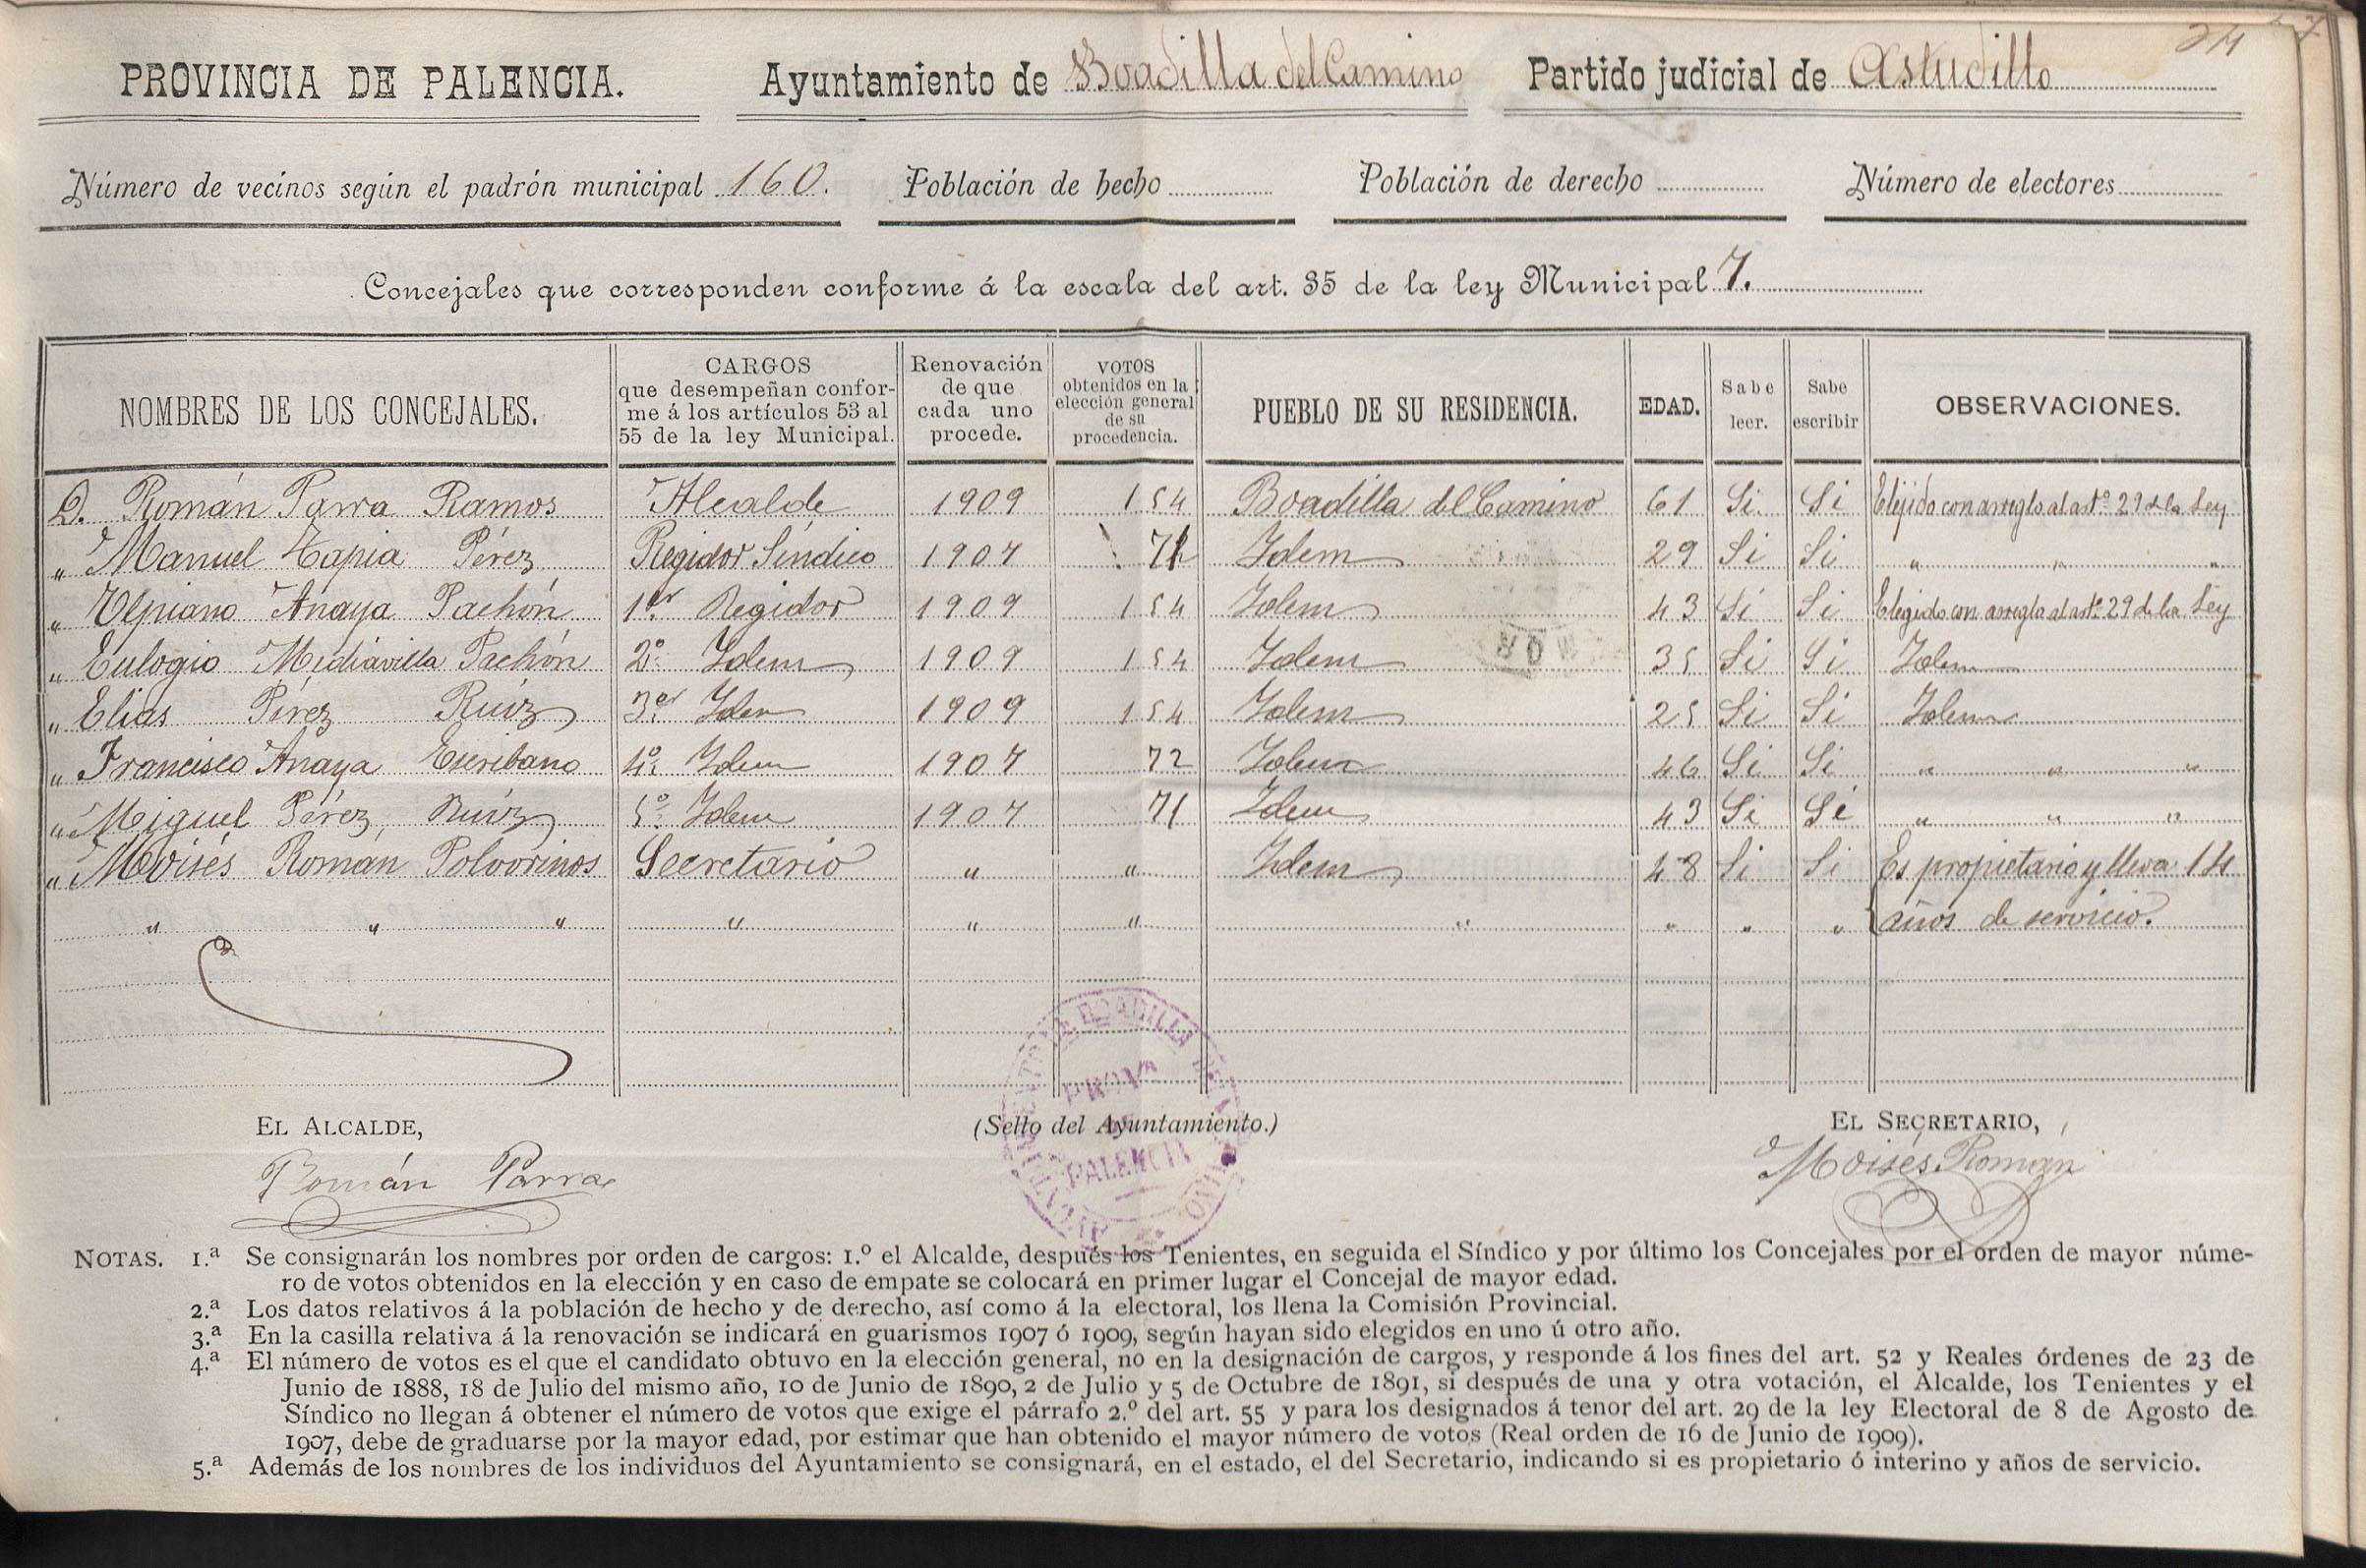 24
PROVINCIA DE PALENCIA. Ayuntamiento de Boadilla del Camino Partido judicial de Astudillo
Número de vecinos según el padrón municipal 160. Población de hecho Población de derecho Número de electores
Concejales que corresponden conforme á la escala del art. 35 de la ley Municipal 7.
NOMBRES DE LOS CONCEJALES. CARGOS que desempeñan confor-me á los artículos 53 al 55 de la ley Municipal. Renovación de que cada uno procede. VOTOS obtenidos en la elección general de su procedencia. PUEBLO DE SU RESIDENCIA. EDAD. Sabe leer. Sabe escribir OBSERVACIONES.
D. Román Parra Ramos Alcalde 1909 154 Boadilla del Camino 61 Si Si Elejido con arreglo al artº 29 de la Ley
" Manuel Tapia Pérez Regidor Síndico 1907 Idem 29 Si Si " " "
" Ulpiano Anaya Pachón 1er Regidor 1909 154 Idem 43 Si Si Elegido con arreglo al artº 29 de la Ley
" Eulogio Mediavilla Pachón 2º Idem 1909 154 Idem 35 Si Si Idem
" Elias Pérez Ruiz 3er Idem 1909 154 Idem 25 Si Si Idem
" Francisco Anaya Escribano 4º Idem 1907 72 Idem 46 Si Si " " "
" Miguel Pérez Ruiz 5º Idem 1907 71 Idem 43 Si Si " " "
" Moisés Román Polvorinos Secretario " " Idem 48 Si Si Es propietario y lleva 14
" " " " " " " " " " años de servicio.
EL ALCALDE, (Sello del Ayuntamiento.) EL SECRETARIO,
AYUNTAMIENTO DE BOADILLA DEL CAMINO
PROVA DE PALENCIA
Román Parra Moisés Román
NOTAS. 1.ª Se consignarán los nombres por orden de cargos: 1.º el Alcalde, después los Tenientes, en seguida el Síndico y por último los Concejales por el orden de mayor núme-
ro de votos obtenidos en la elección y en caso de empate se colocará en primer lugar el Concejal de mayor edad.
2.ª Los datos relativos á la población de hecho y de derecho, así como á la electoral, los llena la Comisión Provincial.
3.ª En la casilla relativa á la renovación se indicará en guarismos 1907 ó 1909, según hayan sido elegidos en uno ú otro año.
4.ª El número de votos es el que el candidato obtuvo en la elección general, no en la designación de cargos, y responde á los fines del art. 52 y Reales órdenes de 23 de
Junio de 1888, 18 de Julio del mismo año, 10 de Junio de 1890, 2 de Julio y 5 de Octubre de 1891, si después de una y otra votación, el Alcalde, los Tenientes y el
Síndico no llegan á obtener el número de votos que exige el párrafo 2.º del art. 55 y para los designados á tenor del art. 29 de la ley Electoral de 8 de Agosto de
1907, debe de graduarse por la mayor edad, por estimar que han obtenido el mayor número de votos (Real orden de 16 de Junio de 1909).
5.ª Además de los nombres de los individuos del Ayuntamiento se consignará, en el estado, el del Secretario, indicando si es propietario ó interino y años de servicio.